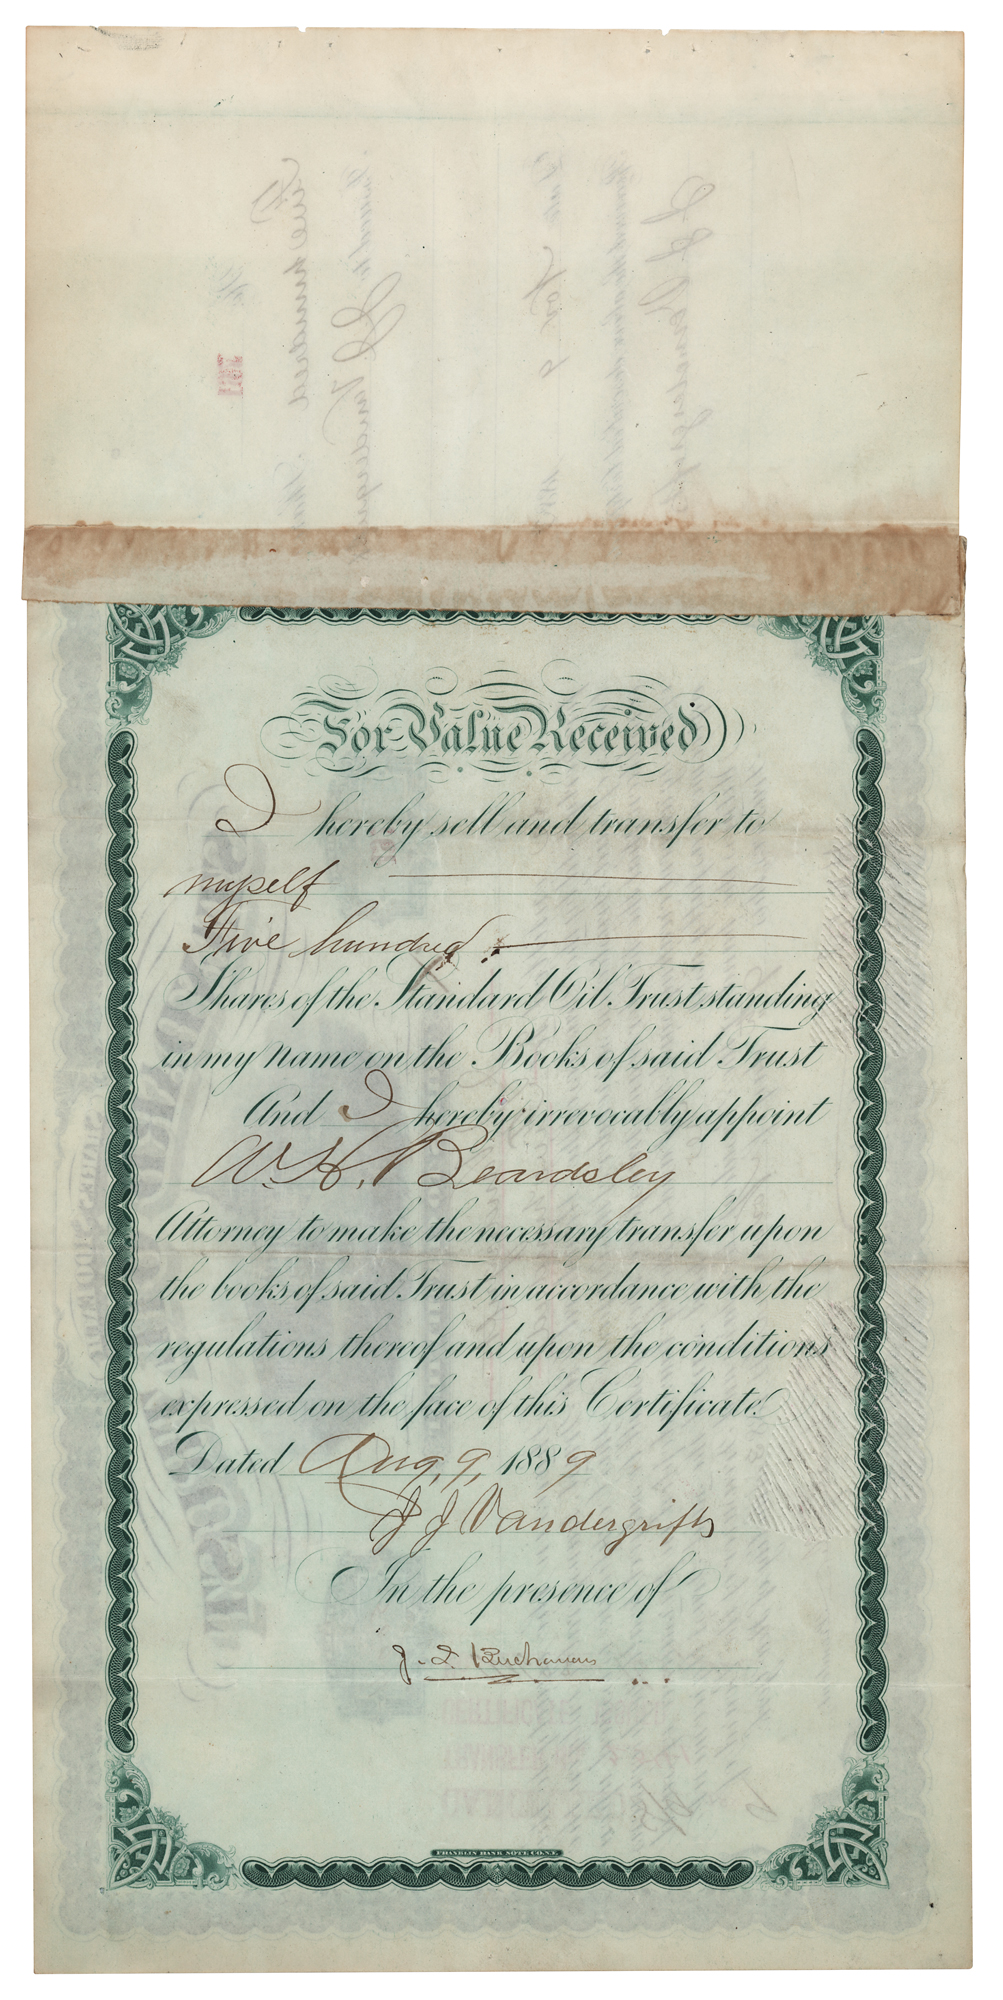 For Value Received
I hereby sell and transfer to
myself
Five hundred
Shares of the Standard Oil Trust standing
in my name on the Books of said Trust
And I hereby irrevocably appoint
W. H. Beardsley
Attorney to make the necessary transfer upon
the books of said Trust in accordance with the
regulations thereof and upon the conditions
expressed on the face of this Certificate.
Dated Aug, 9, 1889
J J Vandergrift
In the presence of
Buchanan
FRANKLIN BANK NOTE CO. N.Y.